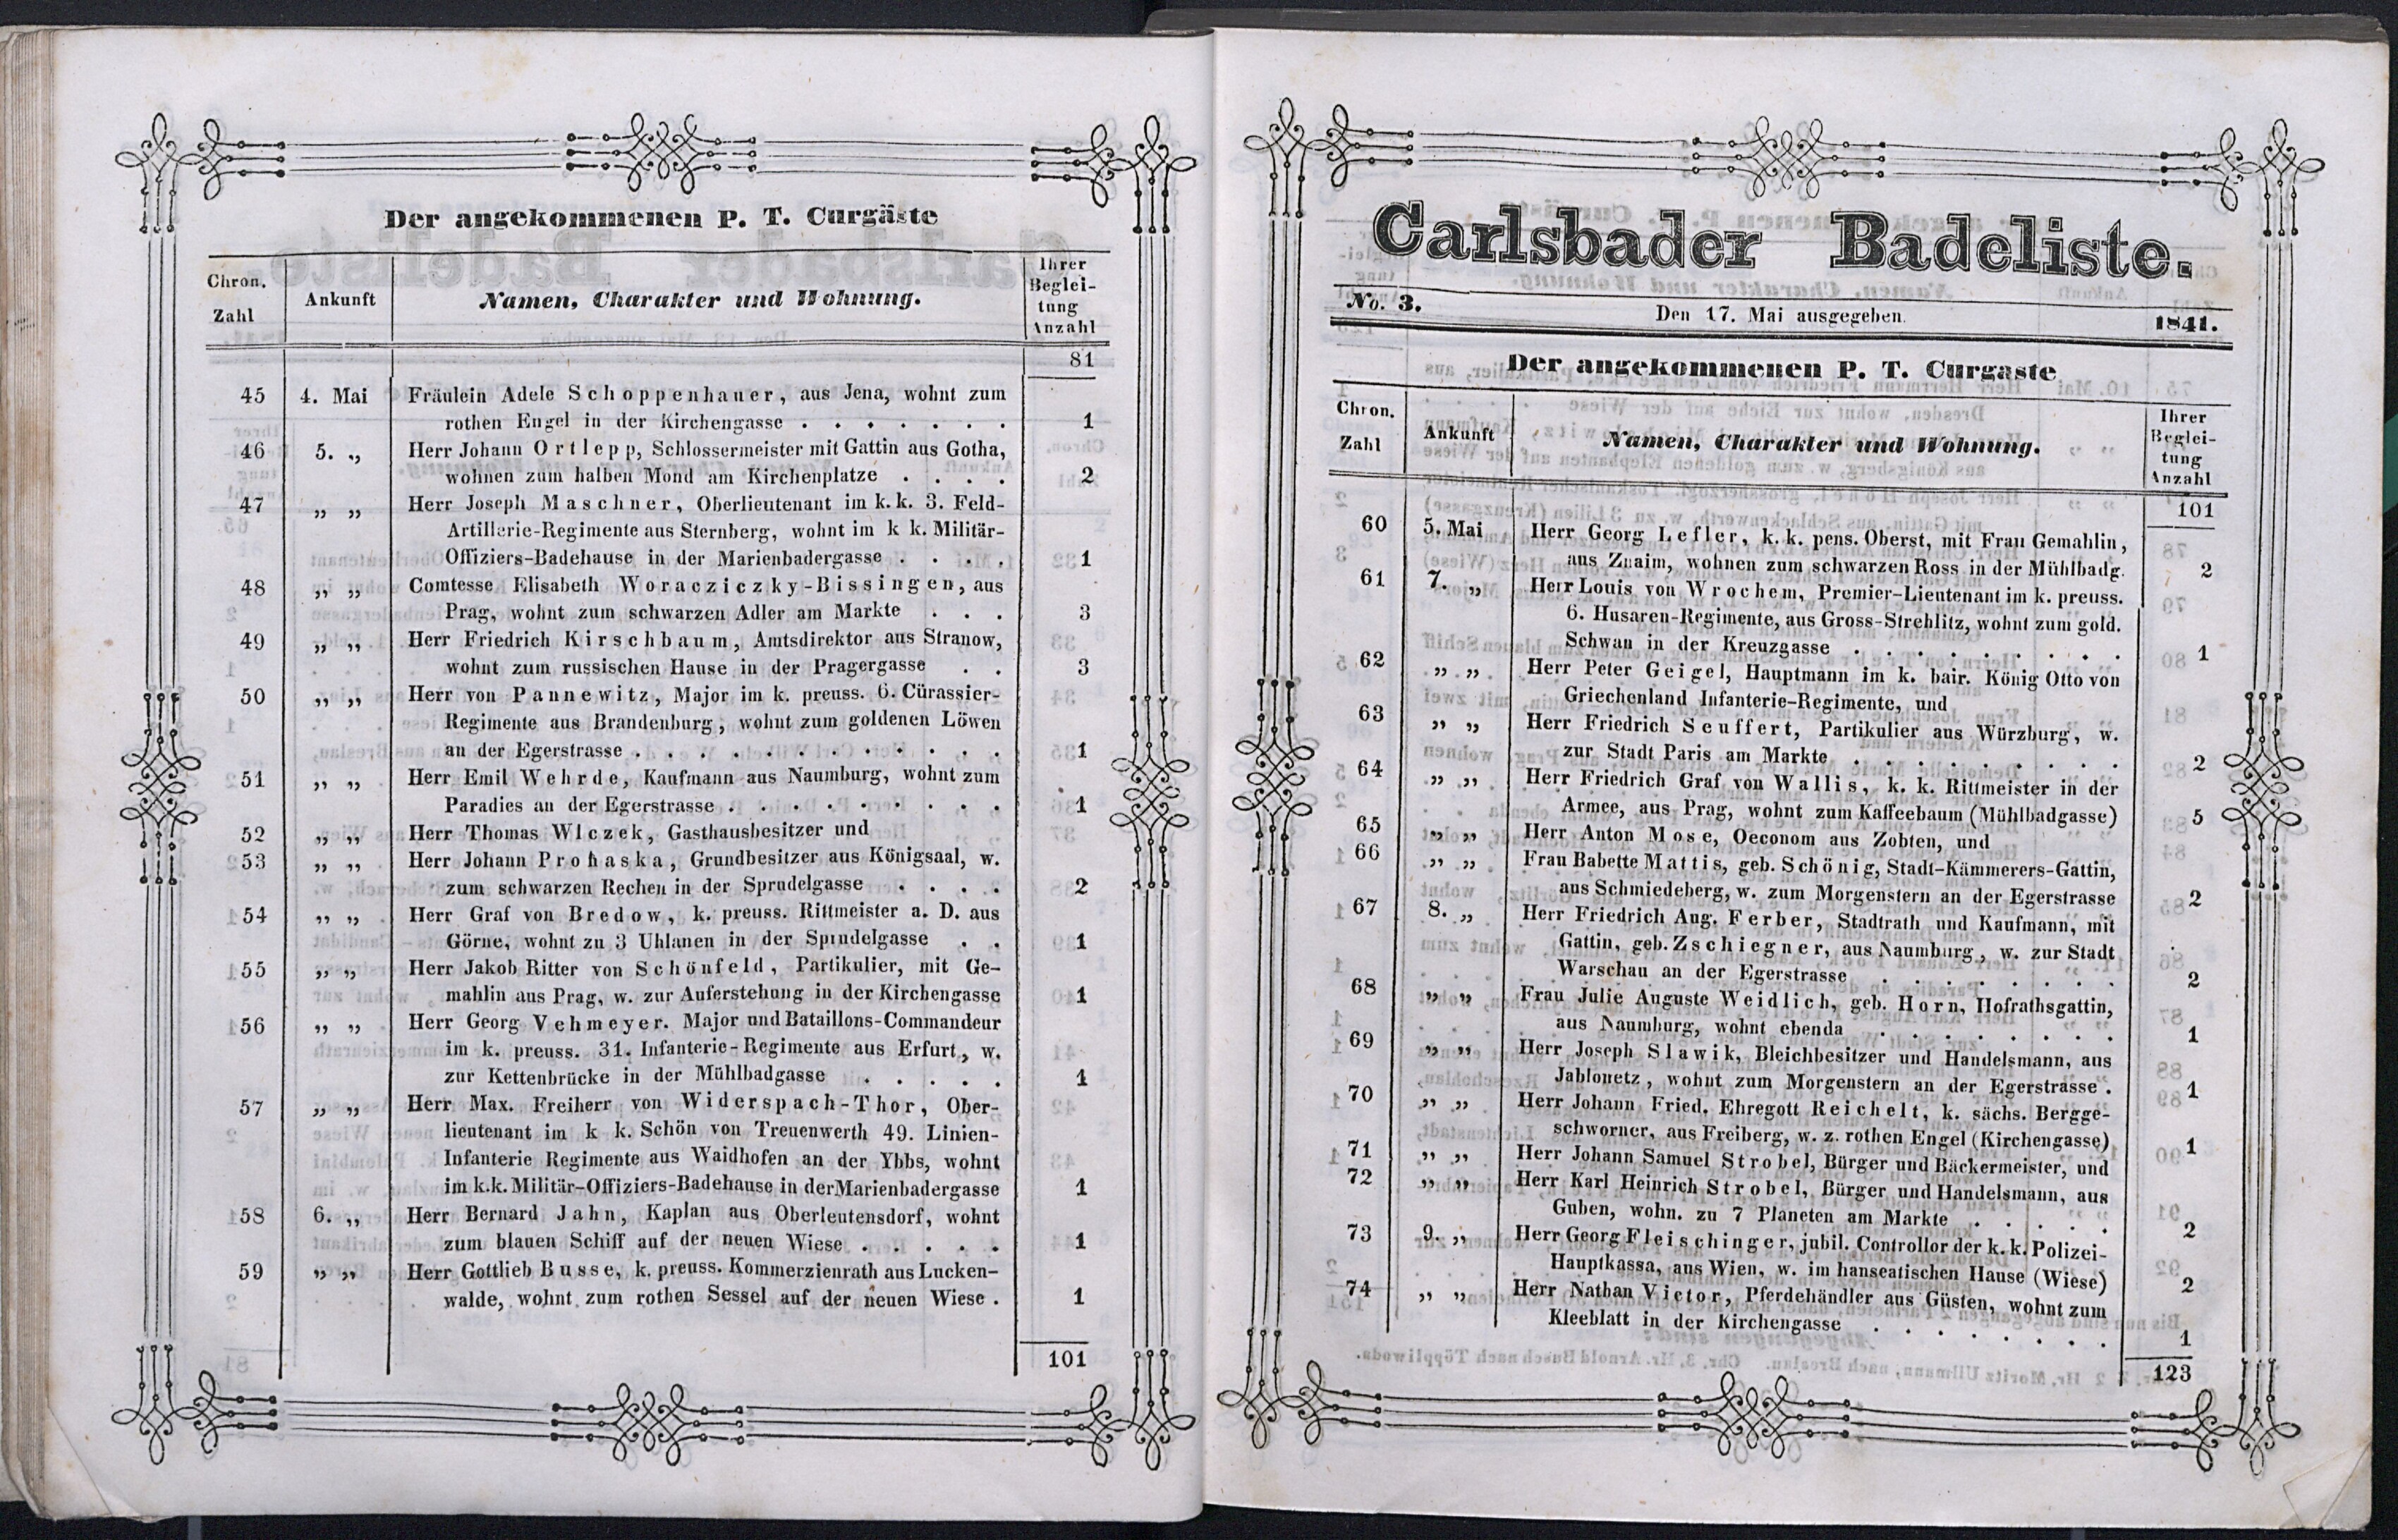 Der angekommenen P. T. Curgäste
Chron. Zahl | Ankunft | Namen, Charakter und Wohnung. | Ihrer Beglei-tung Anzahl
81
45 4. Mai Fräulein Adele Schoppenhauer, aus Jena, wohnt zum
rothen Engel in der Kirchengasse . . . . . . . 1
46 5. „ Herr Johann Ortlepp, Schlossermeister mit Gattin aus Gotha,
wohnen zum halben Mond am Kirchenplatze . . . . 2
47 „ „ Herr Joseph Maschner, Oberlieutenant im k. k. 3. Feld-
Artillerie-Regimente aus Sternberg, wohnt im k k. Militär-
Offiziers-Badehause in der Marienbadergasse . . . . 1
48 „ „ Comtesse Elisabeth Woracziczky-Bissingen, aus
Prag, wohnt zum schwarzen Adler am Markte . . . 3
49 „ „ Herr Friedrich Kirschbaum, Amtsdirektor aus Stranow,
wohnt zum russischen Hause in der Pragergasse . . 3
50 „ „ Herr von Pannewitz, Major im k. preuss. 6. Cürassier-
Regimente aus Brandenburg, wohnt zum goldenen Löwen
an der Egerstrasse . . . . . . . . . . . . 1
51 „ „ Herr Emil Wehrde, Kaufmann aus Naumburg, wohnt zum
Paradies an der Egerstrasse . . . . . . . . . 1
52 „ „ Herr Thomas Wlczek, Gasthausbesitzer und
53 „ „ Herr Johann Prohaska, Grundbesitzer aus Königsaal, w.
zum schwarzen Rechen in der Sprudelgasse . . . . 2
54 „ „ Herr Graf von Bredow, k. preuss. Rittmeister a. D. aus
Görne, wohnt zu 3 Uhlanen in der Sprudelgasse . . 1
55 „ „ Herr Jakob Ritter von Schönfeld, Partikulier, mit Ge-
mahlin aus Prag, w. zur Auferstehung in der Kirchengasse 1
56 „ „ Herr Georg Vehmeyer. Major und Bataillons-Commandeur
im k. preuss. 31. Infanterie-Regimente aus Erfurt, w.
zur Kettenbrücke in der Mühlbadgasse . . . . . 1
57 „ „ Herr Max. Freiherr von Widerspach-Thor, Ober-
lieutenant im k k. Schön von Treuenwerth 49. Linien-
Infanterie Regimente aus Waidhofen an der Ybbs, wohnt
im k.k. Militär-Offiziers-Badehause in der Marienbadergasse 1
58 6. „ Herr Bernard Jahn, Kaplan aus Oberleutensdorf, wohnt
zum blauen Schiff auf der neuen Wiese . . . . . 1
59 „ „ Herr Gottlieb Busse, k. preuss. Kommerzienrath aus Lucken-
walde, wohnt zum rothen Sessel auf der neuen Wiese . 1
101
Carlsbader Badeliste.
No. 3. Den 17. Mai ausgegeben. 1841.
Der angekommenen P. T. Curgäste
Chron. Zahl | Ankunft | Namen, Charakter und Wohnung. | Ihrer Beglei-tung Anzahl
101
60 5. Mai Herr Georg Lefler, k. k. pens. Oberst, mit Frau Gemahlin,
aus Znaim, wohnen zum schwarzen Ross in der Mühlbadg. 2
61 7. „ Herr Louis von Wrochem, Premier-Lieutenant im k. preuss.
6. Husaren-Regimente, aus Gross-Strehlitz, wohnt zum gold.
Schwan in der Kreuzgasse . . . . . . . . . 1
62 „ „ Herr Peter Geigel, Hauptmann im k. bair. König Otto von
Griechenland Infanterie-Regimente, und
63 „ „ Herr Friedrich Seuffert, Partikulier aus Würzburg, w.
zur Stadt Paris am Markte . . . . . . . . . 2
64 „ „ Herr Friedrich Graf von Wallis, k. k. Rittmeister in der
Armee, aus Prag, wohnt zum Kaffeebaum (Mühlbadgasse) 5
65 „ „ Herr Anton Mose, Oeconom aus Zobten, und
66 „ „ Frau Babette Mattis, geb. Schönig, Stadt-Kämmerers-Gattin,
aus Schmiedeberg, w. zum Morgenstern an der Egerstrasse 2
67 8. „ Herr Friedrich Aug. Ferber, Stadtrath und Kaufmann, mit
Gattin, geb. Zschiegner, aus Naumburg, w. zur Stadt
Warschau an der Egerstrasse . . . . . . . . 2
68 „ „ Frau Julie Auguste Weidlich, geb. Horn, Hofrathsgattin,
aus Naumburg, wohnt ebenda . . . . . . . . 1
69 „ „ Herr Joseph Slawik, Bleichbesitzer und Handelsmann, aus
Jablonetz, wohnt zum Morgenstern an der Egerstrasse . 1
70 „ „ Herr Johann Fried. Ehregott Reichelt, k. sächs. Bergge-
schworner, aus Freiberg, w. z. rothen Engel (Kirchengasse) 1
71 „ „ Herr Johann Samuel Strobel, Bürger und Bäckermeister, und
72 „ „ Herr Karl Heinrich Strobel, Bürger und Handelsmann, aus
Guben, wohn. zu 7 Planeten am Markte . . . . . 2
73 9. „ Herr Georg Fleischinger, jubil. Controllor der k. k. Polizei-
Hauptkassa, aus Wien, w. im hanseatischen Hause (Wiese) 2
74 „ „ Herr Nathan Victor, Pferdehändler aus Güsten, wohnt zum
Kleeblatt in der Kirchengasse . . . . . . . . 1
123